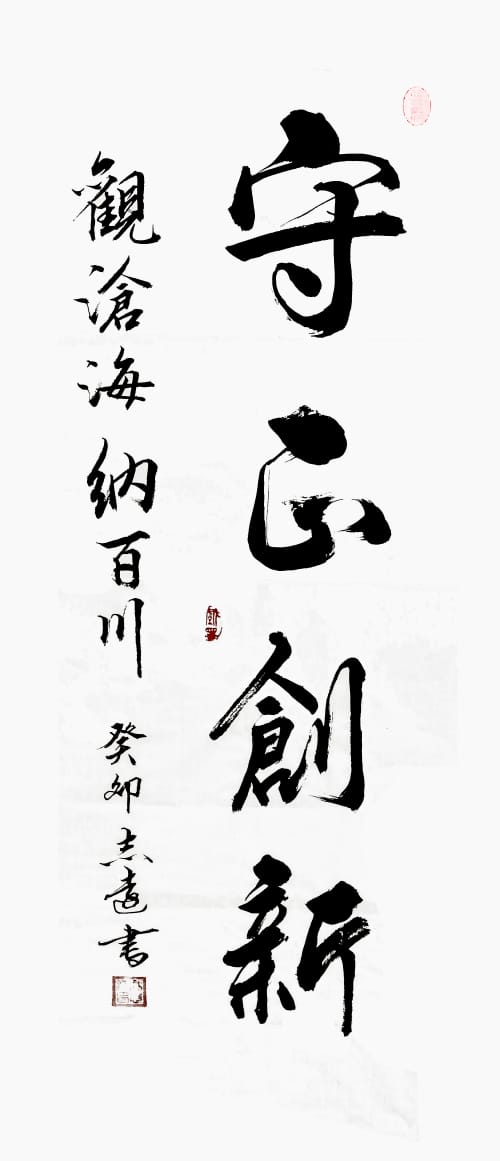 守正創新
觀滄海 納百川 癸卯 志遠書